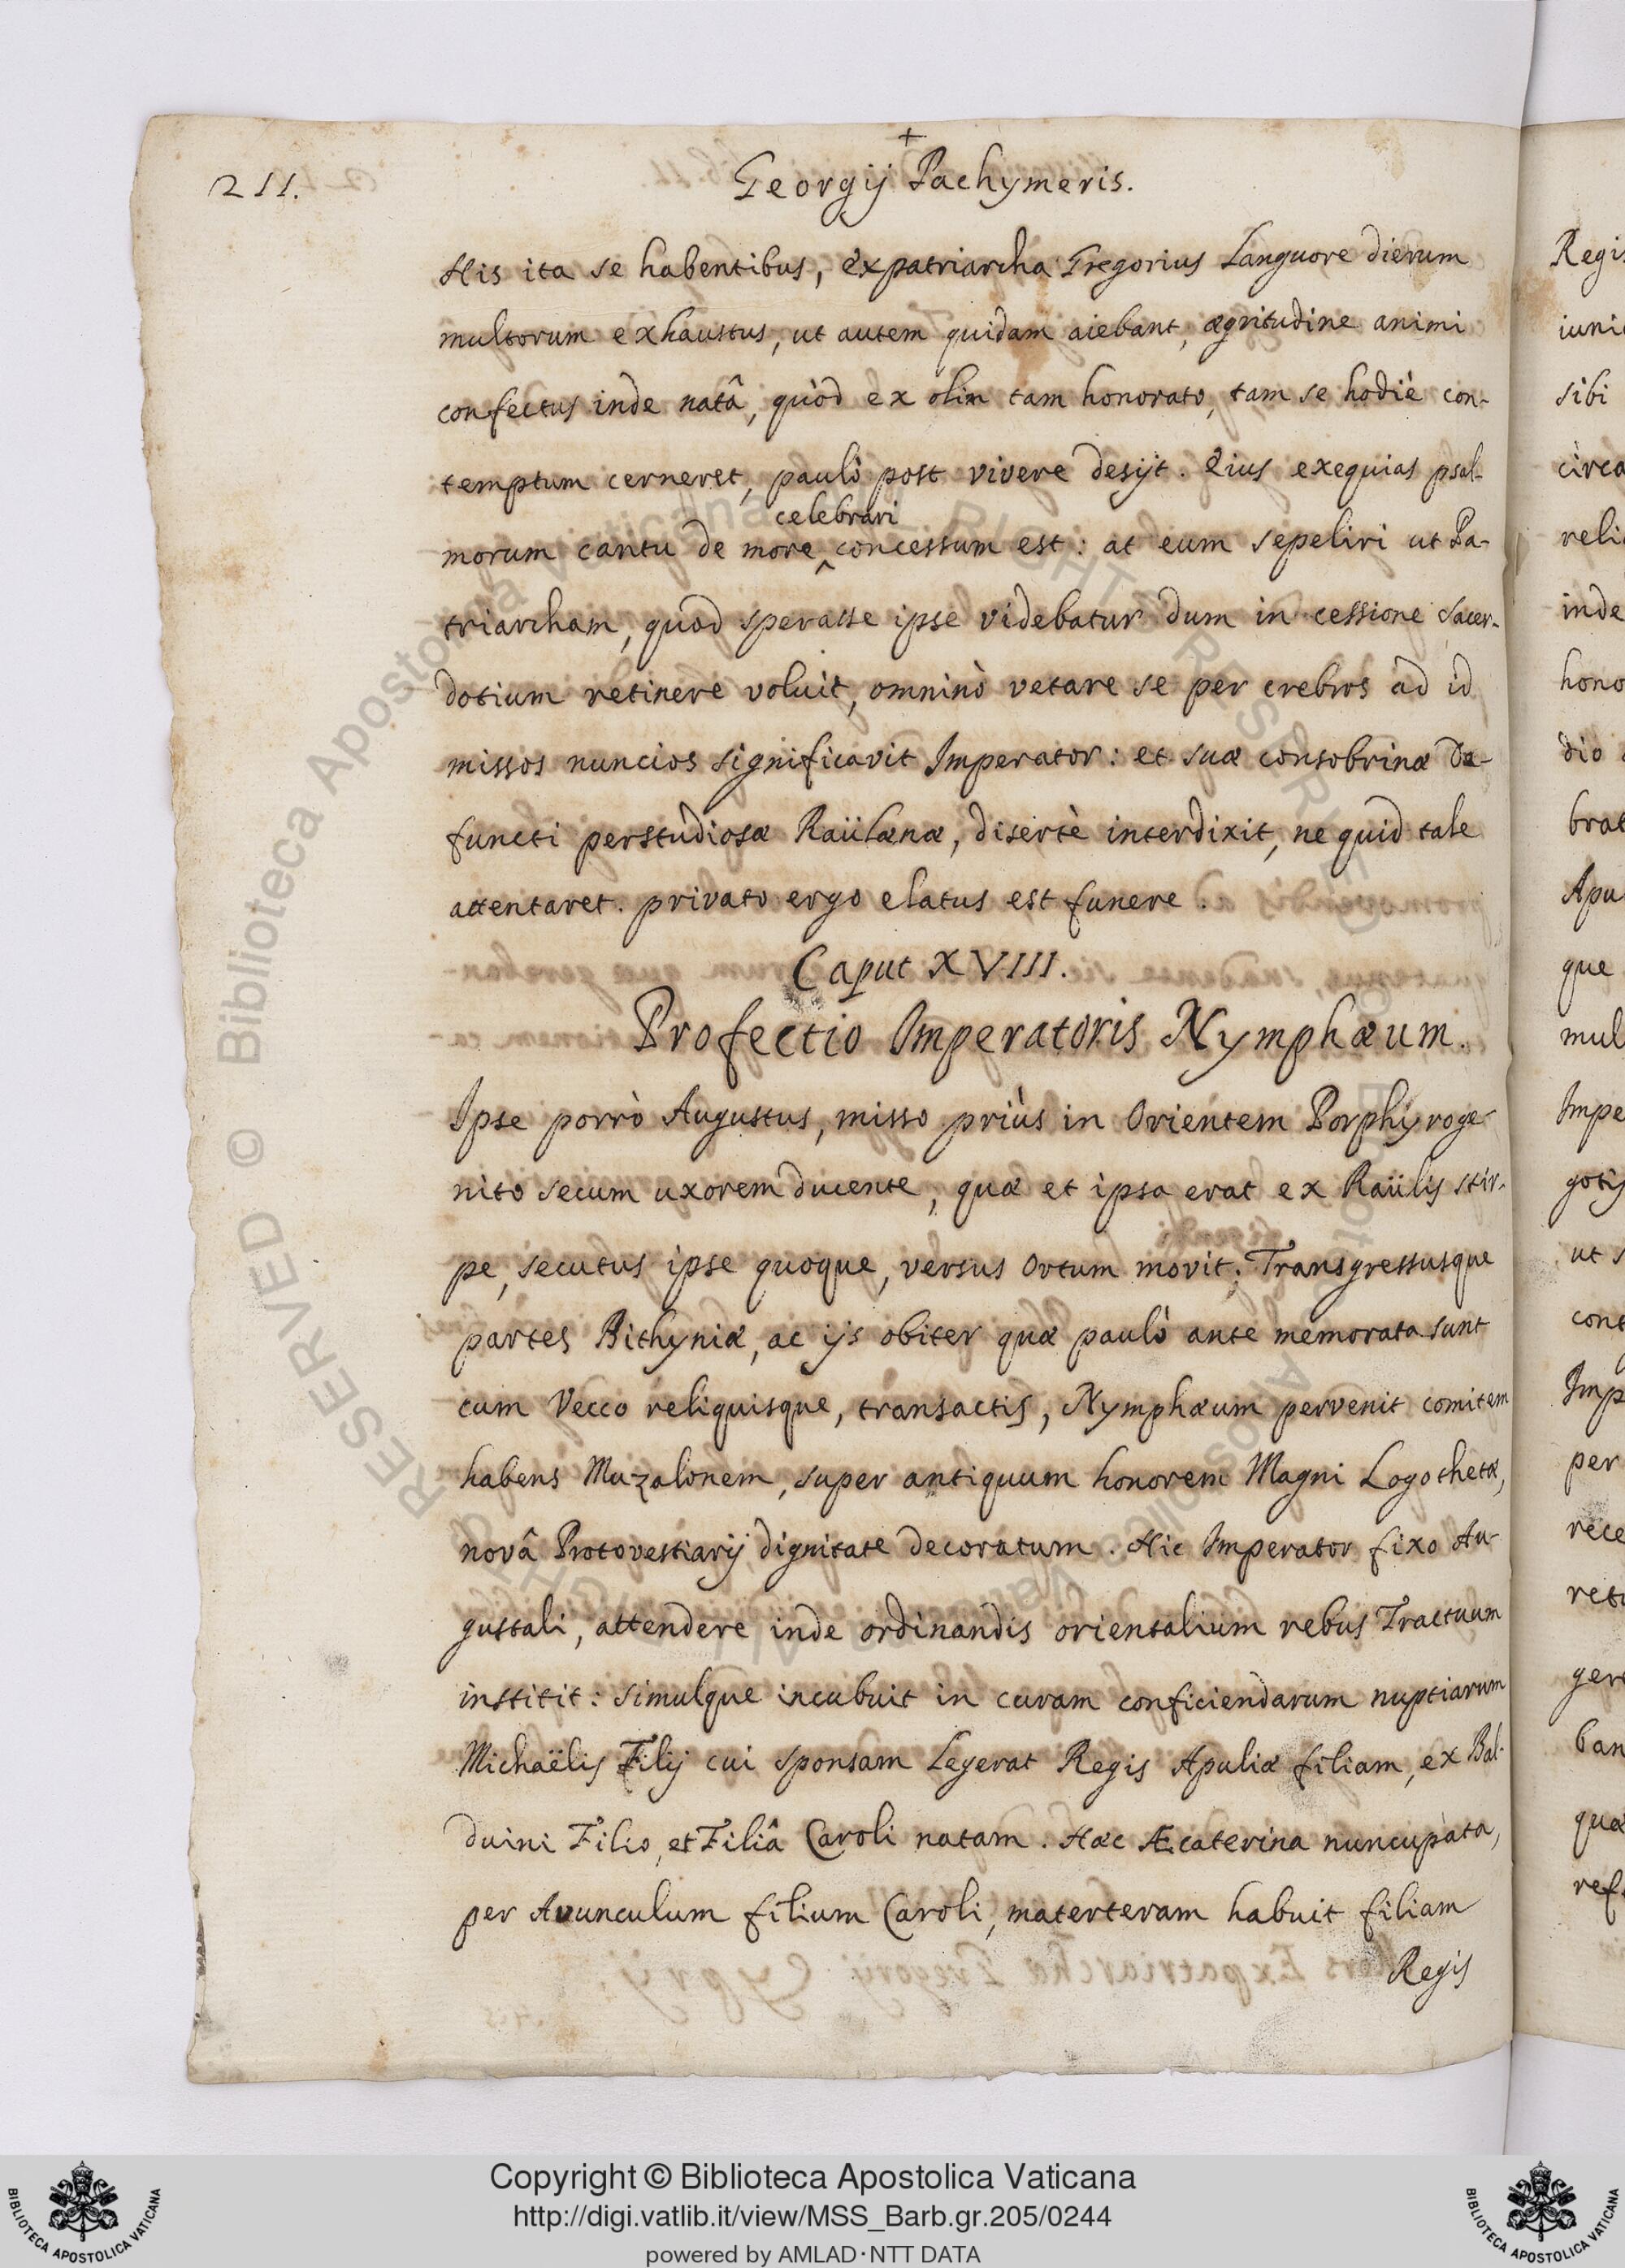 +
211.
Georgij Pachymeris.
His ita se habentibus, expatriarcha Gregorius Languore dierum
multorum exhaustus, ut autem quidam aiebant, ægritudine animi
confectus inde natâ, quòd ex olim tam honorato, tam se hodiè con-
temptum cerneret, paulò post vivere desijt. Eius exequias psal-
celebrari
morum cantu de more ‸ concessum est: at eum sepeliri ut Pa-
triarcham, quod sperasse ipse videbatur dum in cessione sacer-
dotium retinere voluit, omninò vetare se per crebros ad id
missos nuncios significavit Imperator: et suæ consobrinæ De-
functi perstudiosæ Raülænæ, disertè interdixit, ne quid tale
attentaret. privato ergo elatus est funere.
Caput XVIII.
Profectio Imperatoris Nymphæum.
Ipse porrò Augustus, misso priùs in Orientem Porphyroge-
nito secum uxorem ducente, quæ et ipsa erat ex Raülis stir-
pe, secutus ipse quoque, versus ortum movit. Transgressusque
partes Bithyniæ, ac ijs obiter quæ paulò ante memorata sunt
cum Vecco reliquisque, transactis, Nymphæum pervenit comitem
habens Muzalonem, super antiquum honorem Magni Logothetæ,
novâ Protovestiarij dignitate decoratum. Hic Imperator fixo Au-
gustali, attendere inde ordinandis orientalium rebus Tractuum
institit: simulque incubuit in curam conficiendarum nuptiarum
Michaëlis Filij cui sponsam Legerat Regis Apuliæ filiam, ex Bal-
duini Filio, et Filiâ Caroli natam. Hæc Æcaterina nuncupata,
per Avunculum filium Caroli, materteram habuit filiam
Regis
Regis
iuni
sibi
circa
reli
inde
hono
dio
brat
Apu
que
mul
Impe
gotij
ut s
cont
Imp
per
rece
reti
gere
ban
quæ
ref
© Biblioteca Apostolica Vaticana
RIGHTS RESERVED
Copyright © Biblioteca Apostolica Vaticana
http://digi.vatlib.it/view/MSS_Barb.gr.205/0244
powered by AMLAD·NTT DATA
BIBLIOTECA APOSTOLICA VATICANA
BIBLIOTECA APOSTOLICA VATICANA